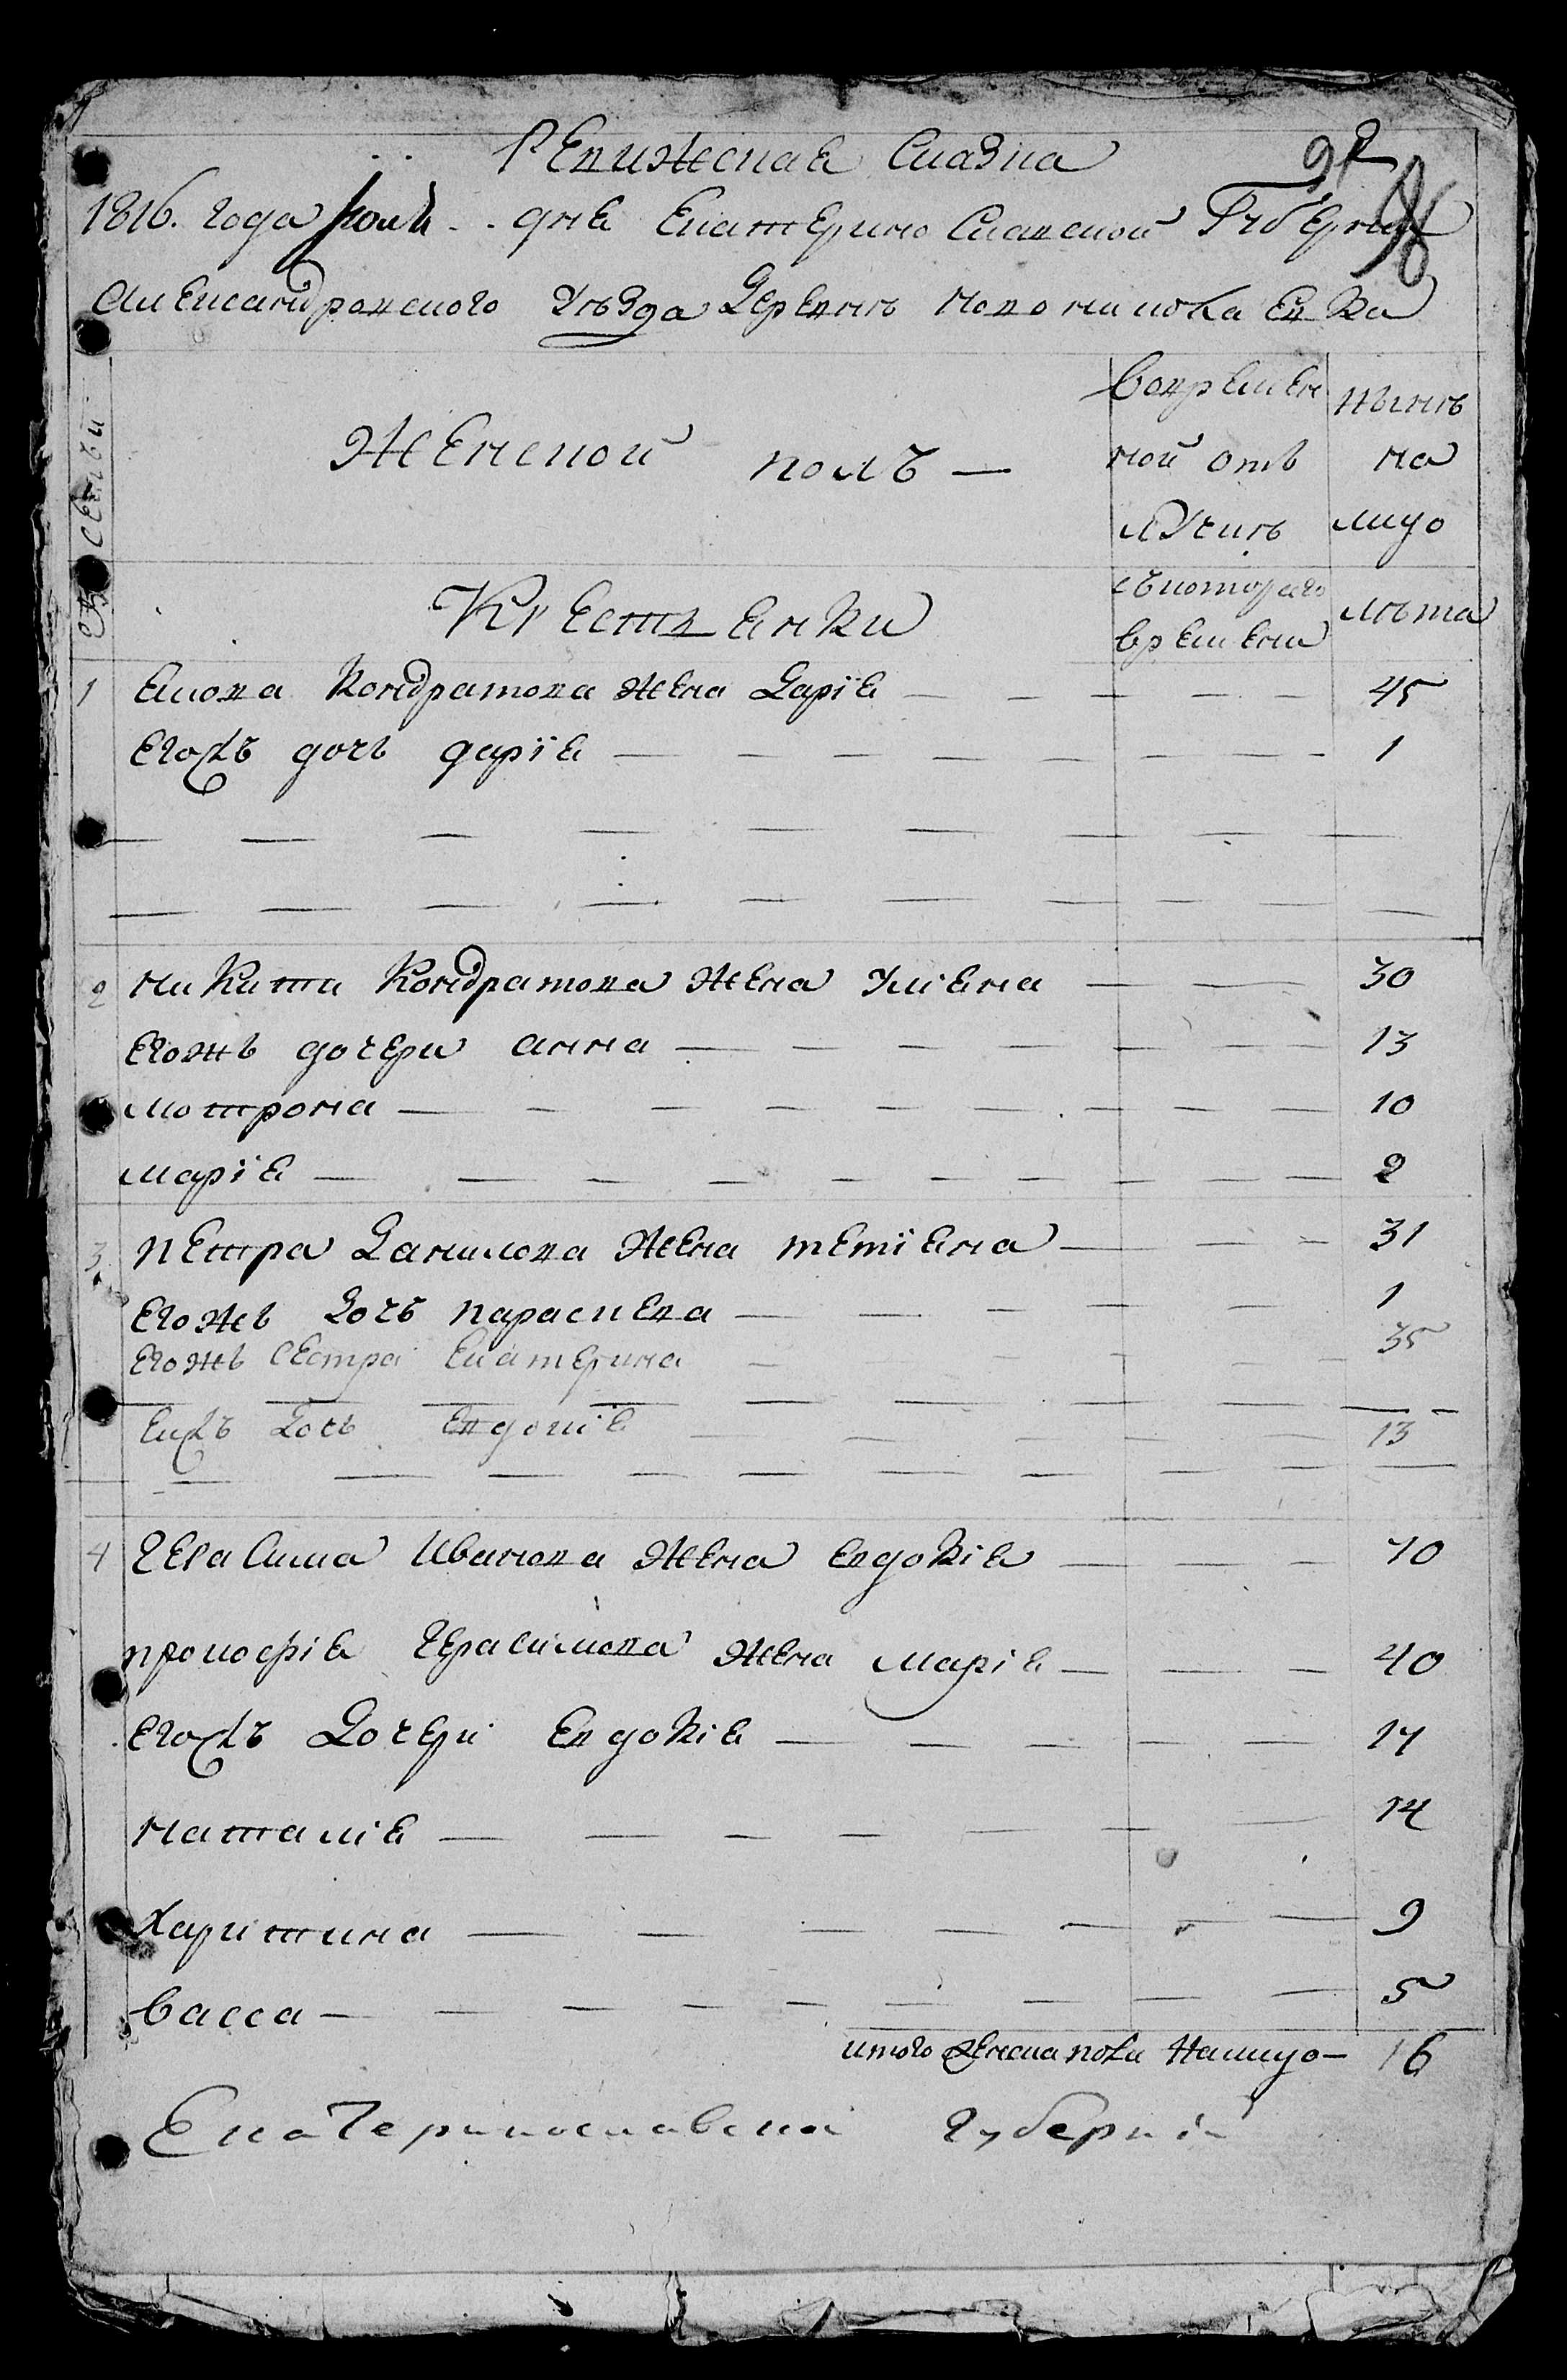 Ревижская Сказка
92
96
1816. года Июля .. дня Екатерино Славской Губернии
Александровского Уѣзда Деревнѣ Новониколаевки
№ Семьи
Женской полъ —
Вовремен
ной отъ
лучкѣ
съкотораго
времени
нынѣ
на
лицо
лѣта
Крестьянки
1 Якова Кондратова жена Дарія — — — — — 45
Егожъ дочь дарія — — — — — — — 1
2 Никиты Кондратова жена Уліяна — — — 30
Егожь дочери анна — — — — — — 13
Мотрона — — — — — — — — — 10
Марія — — — — — — — — — 2
3 Петра Данилова жена тетіяна — — — 31
Егожь Дочь параскева — — — — — 1
Егожь сестра Екатерина — — — — — 35
Еижъ Дочь Евдокія — — — — — 13
4 Герасима Иванова жена Евдокія — — — 70
прокофія Герасимова жена Марія — — — 40
Егожъ Дочери Евдокія — — — — — 17
Наталія — — — — — — — 14
Харитина — — — — — — — 9
Васса — — — — — — — — — 5
итого женска пола Налицо — 16
Екатеринославской Губерніи